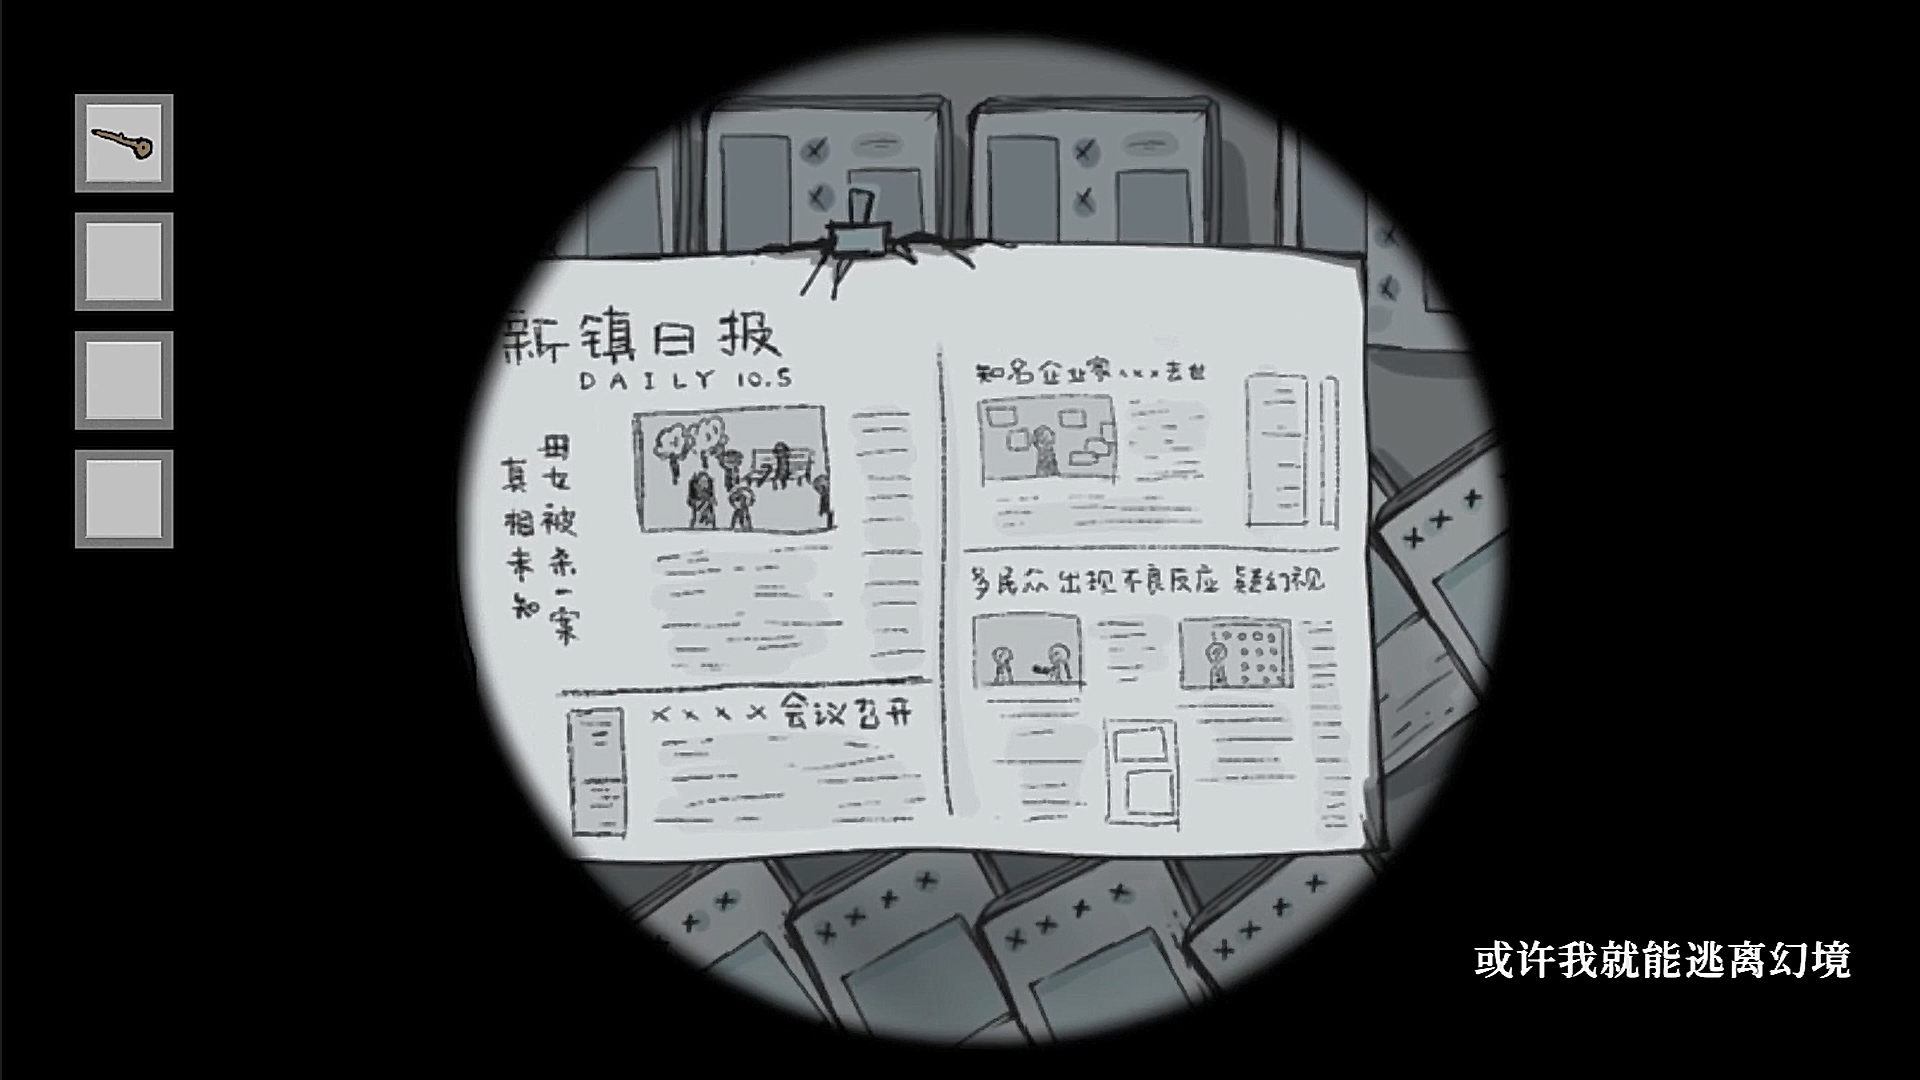 新镇日报
DAILY 10.5
母女被杀一案
真相未知
xxxx会议召开
知名企业家xxx去世
多民众出现不良反应 疑幻视
或许我就能逃离幻境